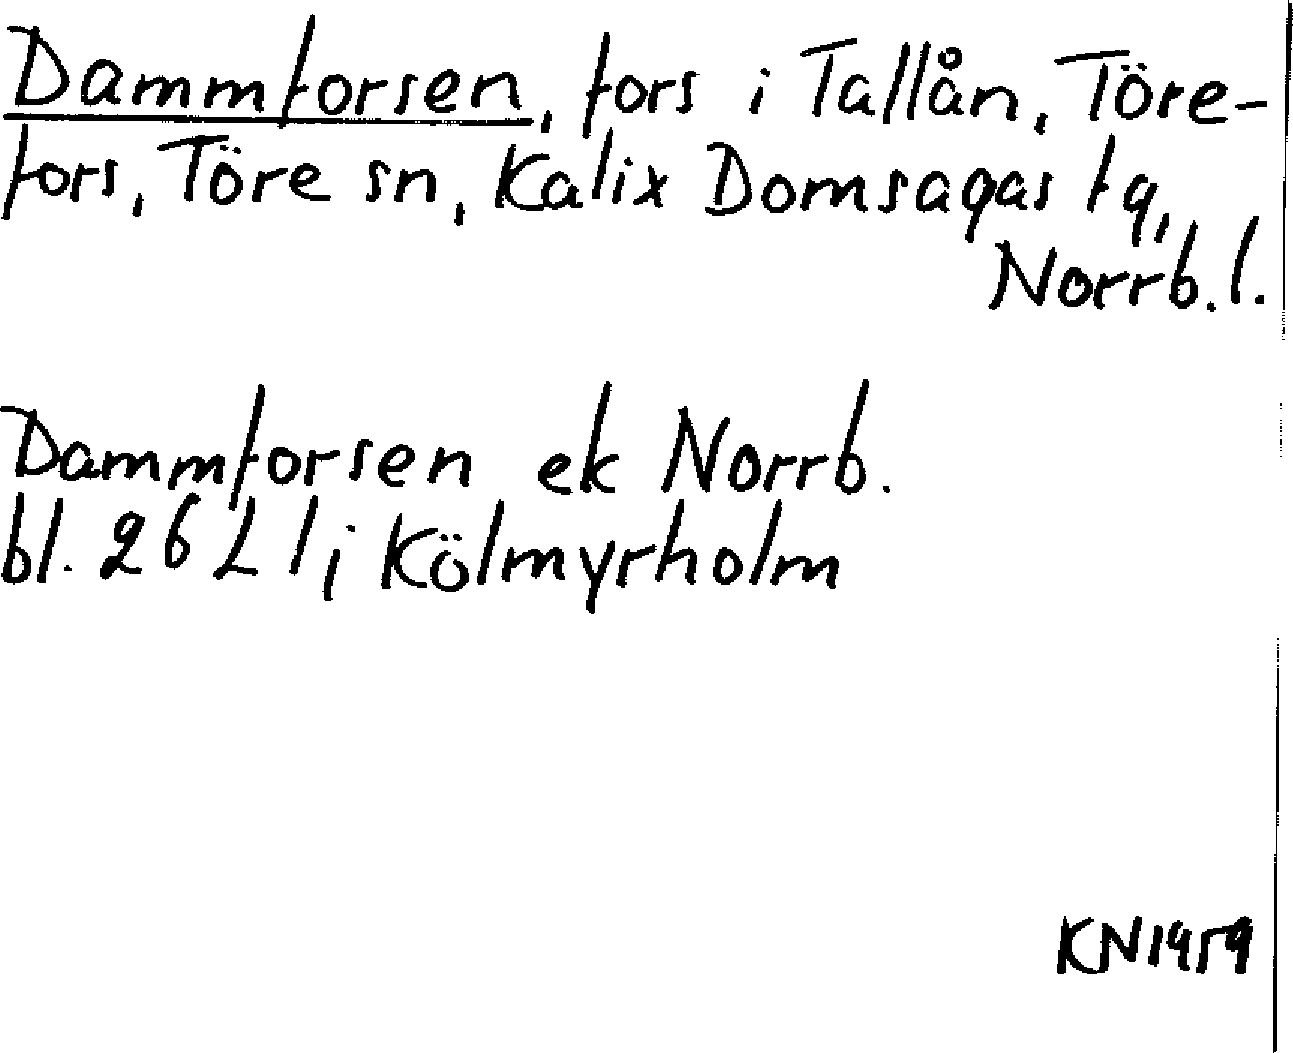 Dammforsen, fors i Tallån, Töre-
fors, Töre sn, Kalix Domsagas tg,
Norrb. l.
Dammforsen ek Norrb.
bl. 26 L 1; Kölmyrholm
KN 1959